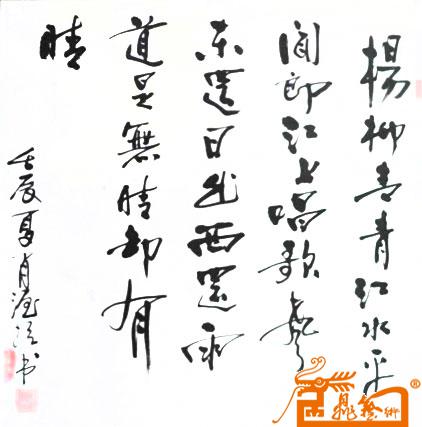 楊柳青青江水平
闻郎江上唱歌聲
东邊日出西邊雨
道是無晴却有
晴
壬辰夏肖书